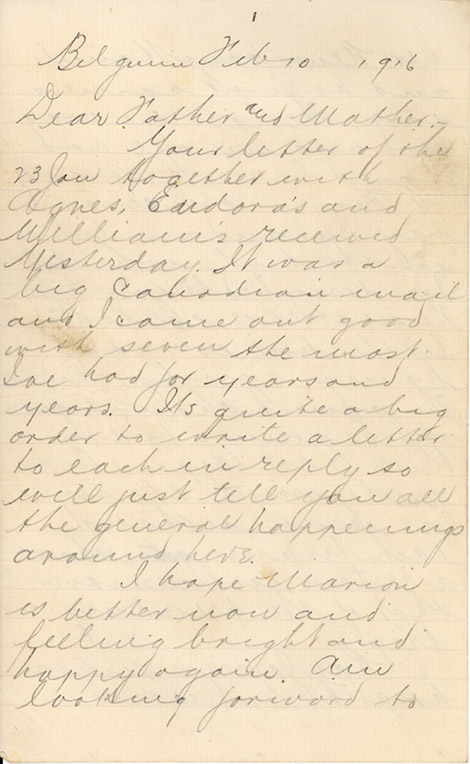 1
Belguim Feb 10 1916
Dear Father and Mother,-
Your letter of the
23 Jan together with
Agnes, Eudora's and
William's received
Yesterday. It was a
big Canadian mail
and I came out good
with seven the most
Ive had for years and
years. Its quite a big
order to write a letter
to each in reply so
will just tell you all
the general happenings
around here.
I hope Marion
is better now and
feeling bright and
happy again. Am
looking forward to